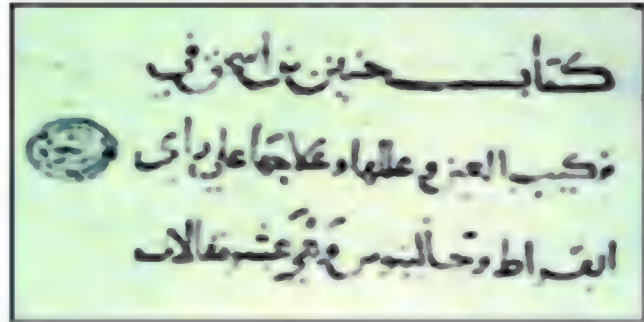 كتاب حنين بن اسحق في
تركيب العين وعللها وعلاجها على راى
ابقراط وجالينوس وهي عشر مقالات